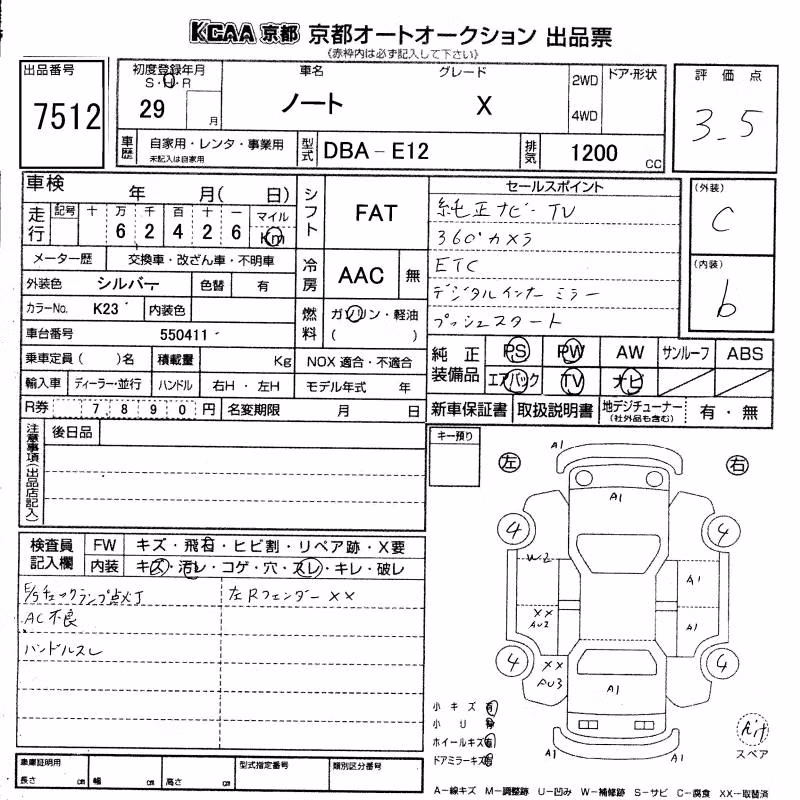 KCAA 京都 京都オートオークション 出品票
《赤枠内は必ず記入して下さい》
出品番号
7512
初度登録年月
S・H・R
29
月
車名
ノート
グレード
X
2WD
4WD
ドア・形状
評価点
3.5
車歴
自家用・レンタ・事業用
未記入は自家用
型式
DBA-E12
排気
1200
CC
車検
年 月( 日)
シフト
FAT
走行
記号 十 万 千 百 十 一 マイル
6 2 4 2 6 Km
メーター歴
交換車・改ざん車・不明車
冷房
AAC 無
外装色
シルバー
色替 有
カラーNo.
K23
内装色
燃料
ガソリン・軽油
( )
車台番号
550411
乗車定員( )名
積載量
Kg
NOX 適合・不適合
輸入車
ディーラー・並行
ハンドル
右H・左H
モデル年式 年
R券
7890円
名変期限
月 日
セールスポイント
純正ナビ TV
360°カメラ
ETC
デジタルインナーミラー
プッシュスタート
(外装)
C
(内装)
b
純正装備品
PS PW AW サンルーフ ABS
エアバック TV ナビ
新車保証書 取扱説明書 地デジチューナー
(社外品も含む)
有・無
注意事項(出品店記入)
後日品
キー預り
検査員記入欄
FW キズ・飛石・ヒビ割・リペア跡・X要
内装 キズ・汚レ・コゲ・穴・スレ・キレ・破レ
E/gチェックランプ点灯
左Rフェンダー XX
AC不良
ハンドルスレ
左 右
A1
A1
4 4
W2
A1
XX
AU2
A1
4 4
XX
AU3
A1
A1 A1
小キズ 有
小U
ホイールキズ 有
ドアミラーキズ
スペア
車庫証明用
長さ cm 幅 cm 高さ cm
型式指定番号
類別区分番号
A-線キズ M-調整跡 U-凹み W-補修跡 S-サビ C-腐食 XX-取替済